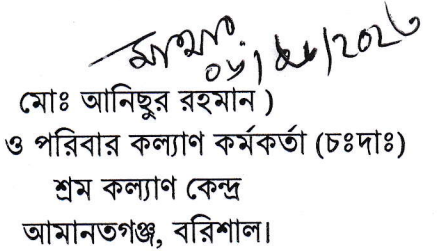 মোঃ আনিছুর রহমান )
ও পরিবার কল্যাণ কর্মকর্তা (চঃদাঃ)
শ্রম কল্যাণ কেন্দ্র
আমানতগঞ্জ, বরিশাল।